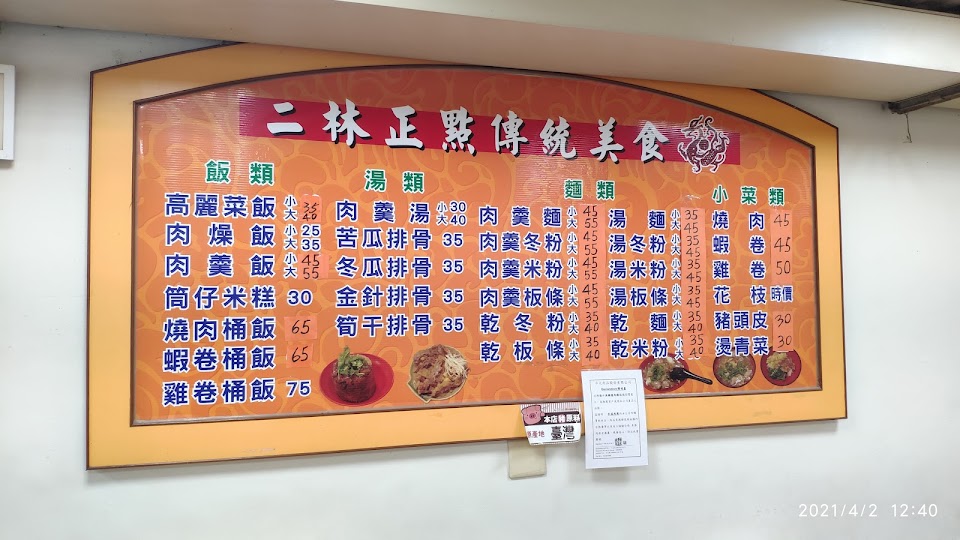 二林正點傳統美食
飯類
高麗菜飯 小35 大40
肉燥飯 小25 大35
肉羹飯 小45 大55
筒仔米糕 30
燒肉桶飯 65
蝦卷桶飯 65
雞卷桶飯 75
湯類
肉羹湯 小30 大40
苦瓜排骨 35
冬瓜排骨 35
金針排骨 35
筍干排骨 35
麵類
肉羹麵 小45 大55
肉羹冬粉 小45 大55
肉羹米粉 小45 大55
肉羹板條 小45 大55
乾冬粉 小35 大40
乾板條 小35 大40
湯麵 小35 大45
湯冬粉 小35 大45
湯米粉 小35 大45
湯板條 小35 大45
乾麵 小35 大40
乾米粉 小35 大40
小菜類
燒肉 45
蝦卷 45
雞卷 50
花枝 時價
豬頭皮 30
燙青菜 30
本店豬原料
原產地 臺灣
2021/4/2 12:40